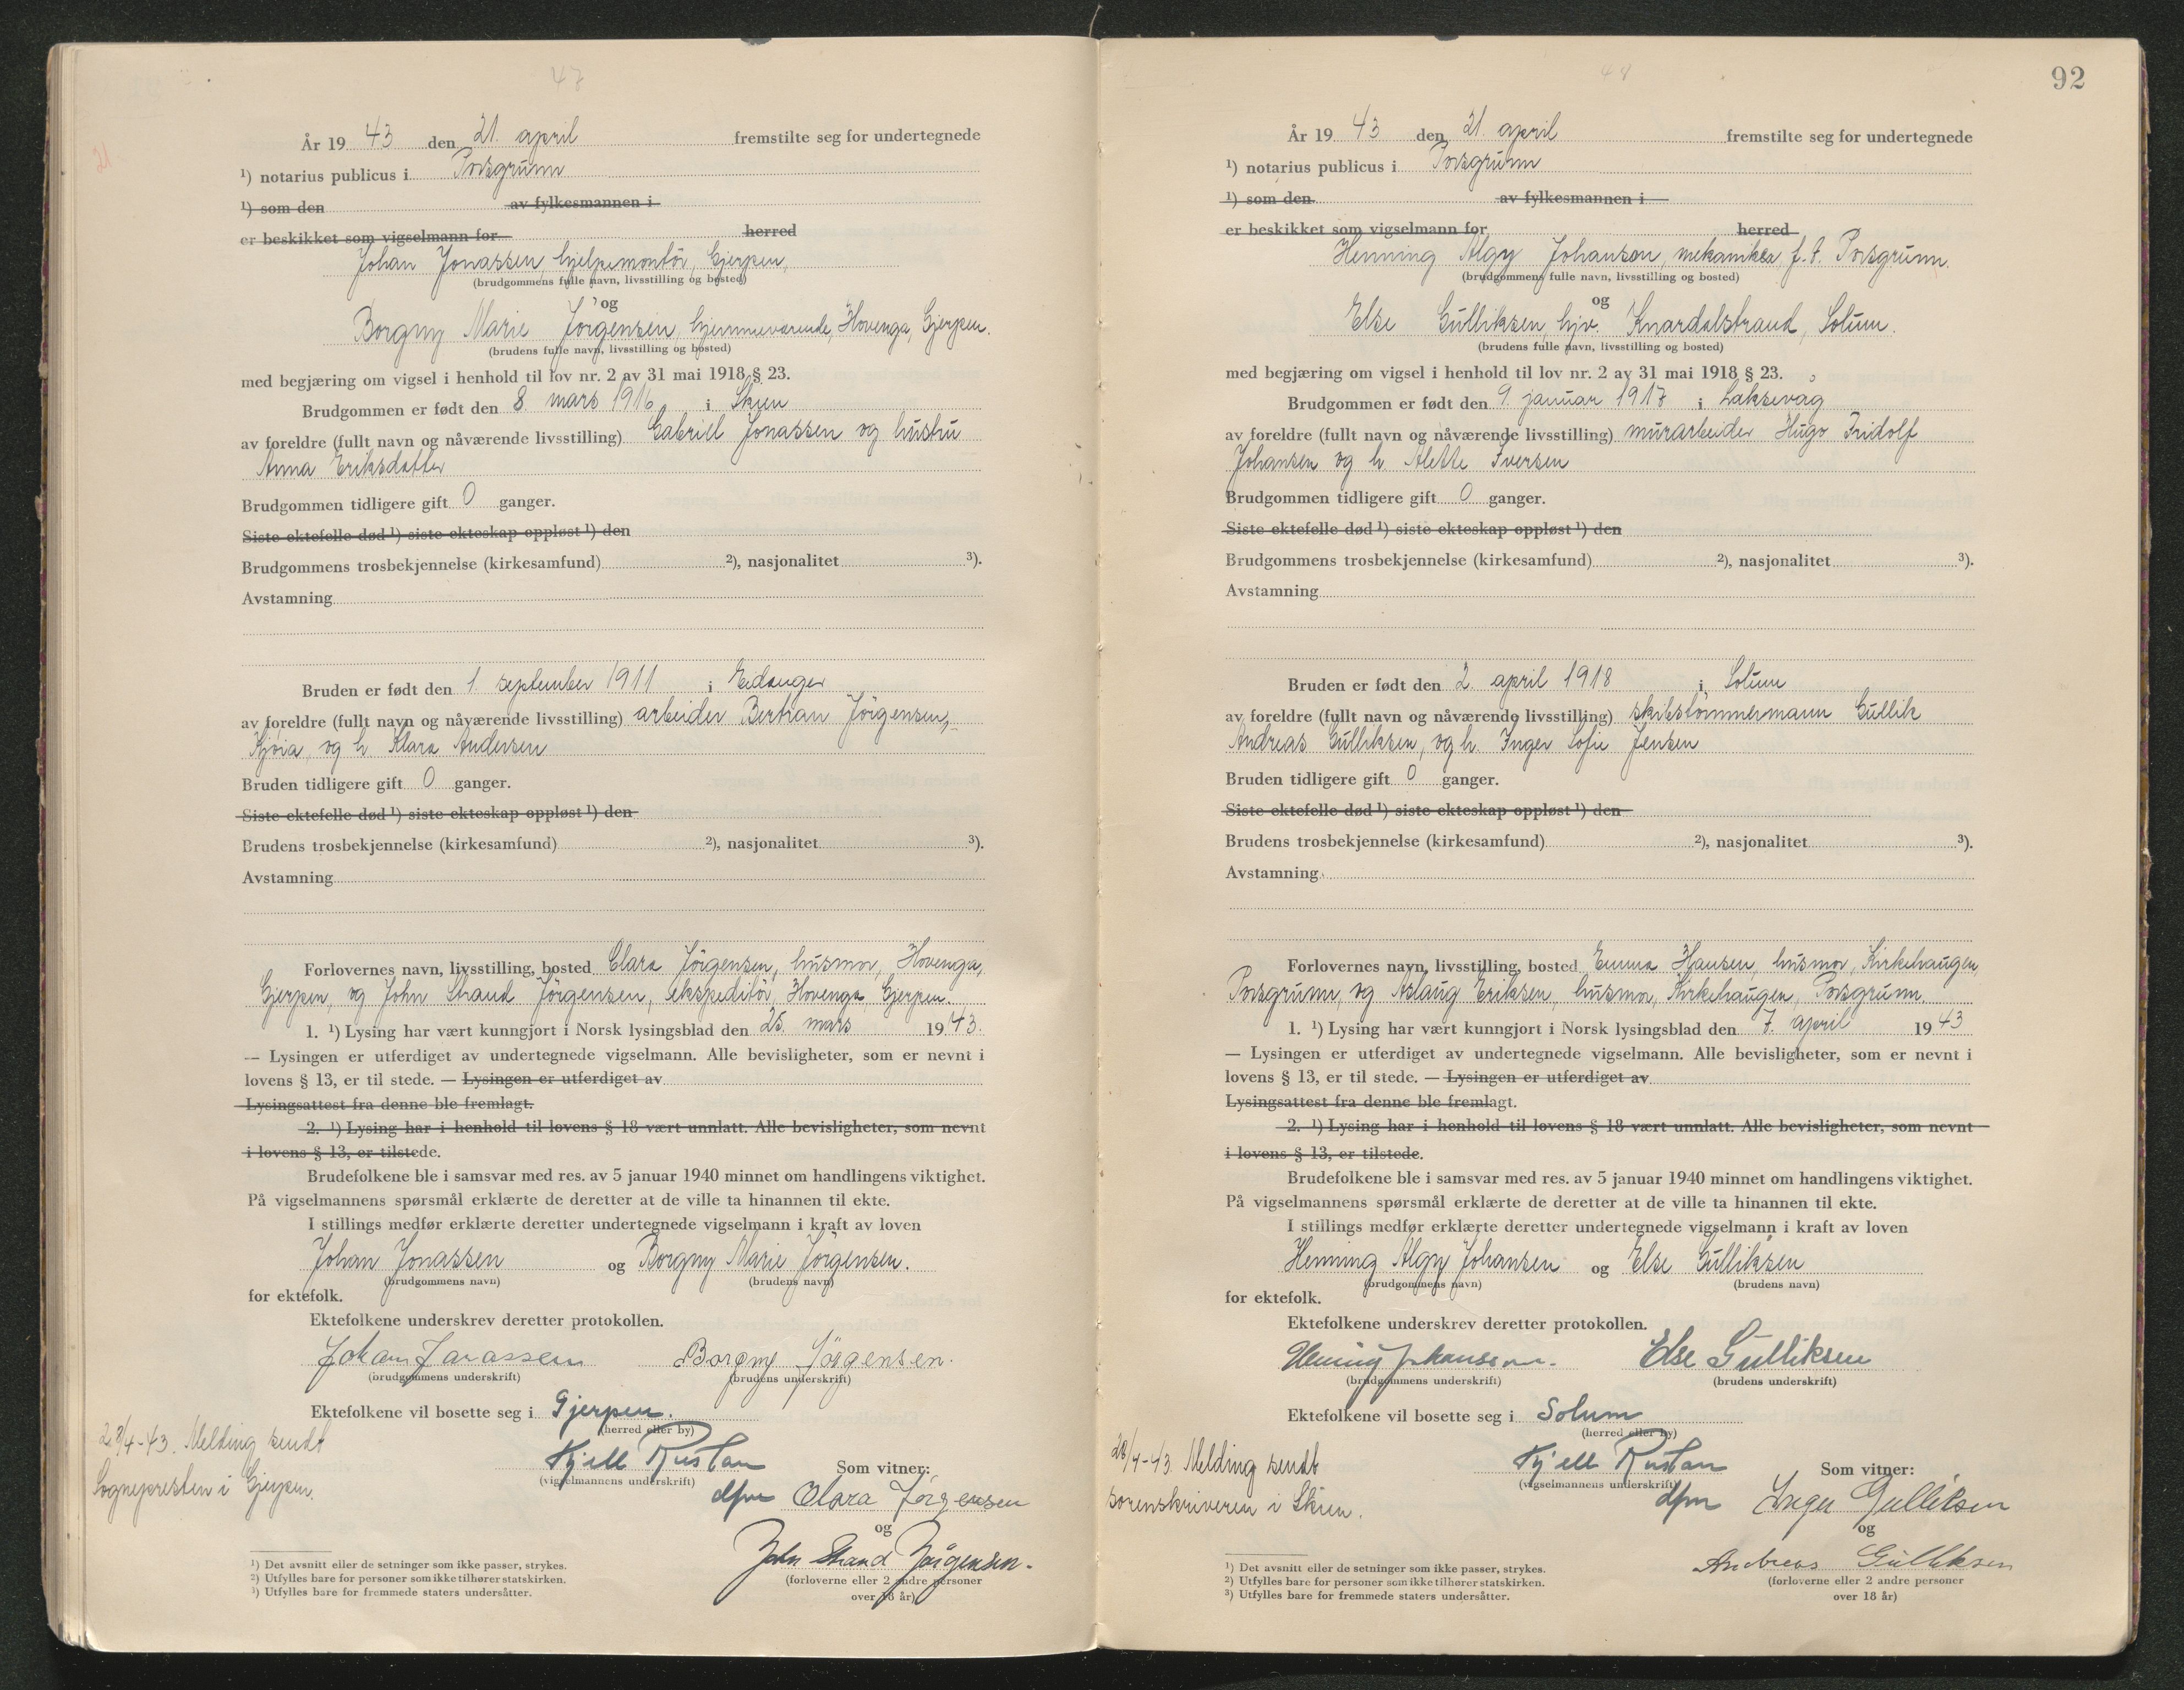 47
År 19 43 den 21. april fremstilte seg for undertegnede
¹) notarius publicus i Porsgrunn
¹) som den av fylkesmannen i
er beskikket som vigselmann for herred
Johan Jonassen, hjelpemontör, Gjerpen,
(brudgommens fulle navn, livsstilling og bosted)
og
Borgny Marie Jörgensen, hjemmeværende, Hovenga, Gjerpen.
(brudens fulle navn, livsstilling og bosted)
med begjæring om vigsel i henhold til lov nr. 2 av 31 mai 1918 § 23.
Brudgommen er født den 8. mars 1916 i Skien
av foreldre (fullt navn og nåværende livsstilling) Gabriel Jonassen og hustru
Anna Eriksdatter
Brudgommen tidligere gift 0 ganger.
Siste ektefelle død ¹) siste ekteskap oppløst ¹) den
Brudgommens trosbekjennelse (kirkesamfund) ²), nasjonalitet ³).
Avstamning
Bruden er født den 1. september 1911 i Eidanger
av foreldre (fullt navn og nåværende livsstilling) arbeider Bertian Jörgensen,
og h. Klara Andersen
Bruden tidligere gift 0 ganger.
Siste ektefelle død ¹) siste ekteskap oppløst ¹) den
Brudens trosbekjennelse (kirkesamfund) ²), nasjonalitet ³).
Avstamning
Forlovernes navn, livsstilling, bosted Clara Jörgensen, husmor, Hovenga,
Gjerpen, og John Strand Jörgensen, ekspeditör, Hovenga, Gjerpen.
1. ¹) Lysing har vært kunngjort i Norsk lysingsblad den 25. mars 1943.
— Lysingen er utferdiget av undertegnede vigselmann. Alle bevisligheter, som er nevnt i
lovens § 13, er til stede. — Lysingen er utferdiget av
Lysingsattest fra denne ble fremlagt.
2. ¹) Lysing har i henhold til lovens § 18 vært unnlatt. Alle bevisligheter, som nevnt
i lovens § 13, er tilstede.
Brudefolkene ble i samsvar med res. av 5 januar 1940 minnet om handlingens viktighet.
På vigselmannens spørsmål erklærte de deretter at de ville ta hinannen til ekte.
I stillings medfør erklærte deretter undertegnede vigselmann i kraft av loven
Johan Jonassen og Borgny Marie Jörgensen.
(brudgommens navn) (brudens navn)
for ektefolk.
Ektefolkene underskrev deretter protokollen.
Johan Jonassen Borgny Jörgensen.
(brudgommens underskrift) (brudens underskrift)
Ektefolkene vil bosette seg i Gjerpen.
(herred eller by)
28/4-43. Melding sendt
Sognepresten i Gjerpen.
Kjell Rustan
(vigselmannens underskrift)
dfm
Som vitner:
Clara Jörgensen
og
John Strand Jörgensen.
(forloverne eller 2 andre personer
over 18 år)
¹) Det avsnitt eller de setninger som ikke passer, strykes.
²) Utfylles bare for personer som ikke tilhører statskirken.
³) Utfylles bare for fremmede staters undersåtter.
48
92
År 19 43 den 21. april fremstilte seg for undertegnede
¹) notarius publicus i Porsgrunn
¹) som den av fylkesmannen i
er beskikket som vigselmann for herred
Henning Algy Johanson, mekaniker, f.t. Porsgrunn.
(brudgommens fulle navn, livsstilling og bosted)
og
Else Gulliksen, hjv. Knardalstrand, Solum.
(brudens fulle navn, livsstilling og bosted)
med begjæring om vigsel i henhold til lov nr. 2 av 31 mai 1918 § 23.
Brudgommen er født den 9. januar 1917 i Laksevåg
av foreldre (fullt navn og nåværende livsstilling) murarbeider Hugo Fridolf
Johansen og h. Alette Iversen
Brudgommen tidligere gift 0 ganger.
Siste ektefelle død ¹) siste ekteskap oppløst ¹) den
Brudgommens trosbekjennelse (kirkesamfund) ²), nasjonalitet ³).
Avstamning
Bruden er født den 2. april 1918 i Solum
av foreldre (fullt navn og nåværende livsstilling) skibstömmermann Gullik
Andreas Gulliksen, og h. Inger Sofie Jensen
Bruden tidligere gift 0 ganger.
Siste ektefelle død ¹) siste ekteskap oppløst ¹) den
Brudens trosbekjennelse (kirkesamfund) ²), nasjonalitet ³).
Avstamning
Forlovernes navn, livsstilling, bosted Emma Hansen, husmor, Kirkehaugen,
Porsgrunn, og Aslaug Eriksen, husmor, Kirkehaugen, Porsgrunn.
1. ¹) Lysing har vært kunngjort i Norsk lysingsblad den 7. april 1943
— Lysingen er utferdiget av undertegnede vigselmann. Alle bevisligheter, som er nevnt i
lovens § 13, er til stede. — Lysingen er utferdiget av
Lysingsattest fra denne ble fremlagt.
2. ¹) Lysing har i henhold til lovens § 18 vært unnlatt. Alle bevisligheter, som nevnt
i lovens § 13, er tilstede.
Brudefolkene ble i samsvar med res. av 5 januar 1940 minnet om handlingens viktighet.
På vigselmannens spørsmål erklærte de deretter at de ville ta hinannen til ekte.
I stillings medfør erklærte deretter undertegnede vigselmann i kraft av loven
Henning Algy Johansen og Else Gulliksen
(brudgommens navn) (brudens navn)
for ektefolk.
Ektefolkene underskrev deretter protokollen.
Henning Johansson. Else Gulliksen
(brudgommens underskrift) (brudens underskrift)
Ektefolkene vil bosette seg i Solum
(herred eller by)
28/4-43. Melding sendt
sorenskriveren i Skien.
Kjell Rustan
(vigselmannens underskrift)
dfm
Som vitner:
Inger Gulliksen
og
Andreas Gulliksen
(forloverne eller 2 andre personer
over 18 år)
¹) Det avsnitt eller de setninger som ikke passer, strykes.
²) Utfylles bare for personer som ikke tilhører statskirken.
³) Utfylles bare for fremmede staters undersåtter.